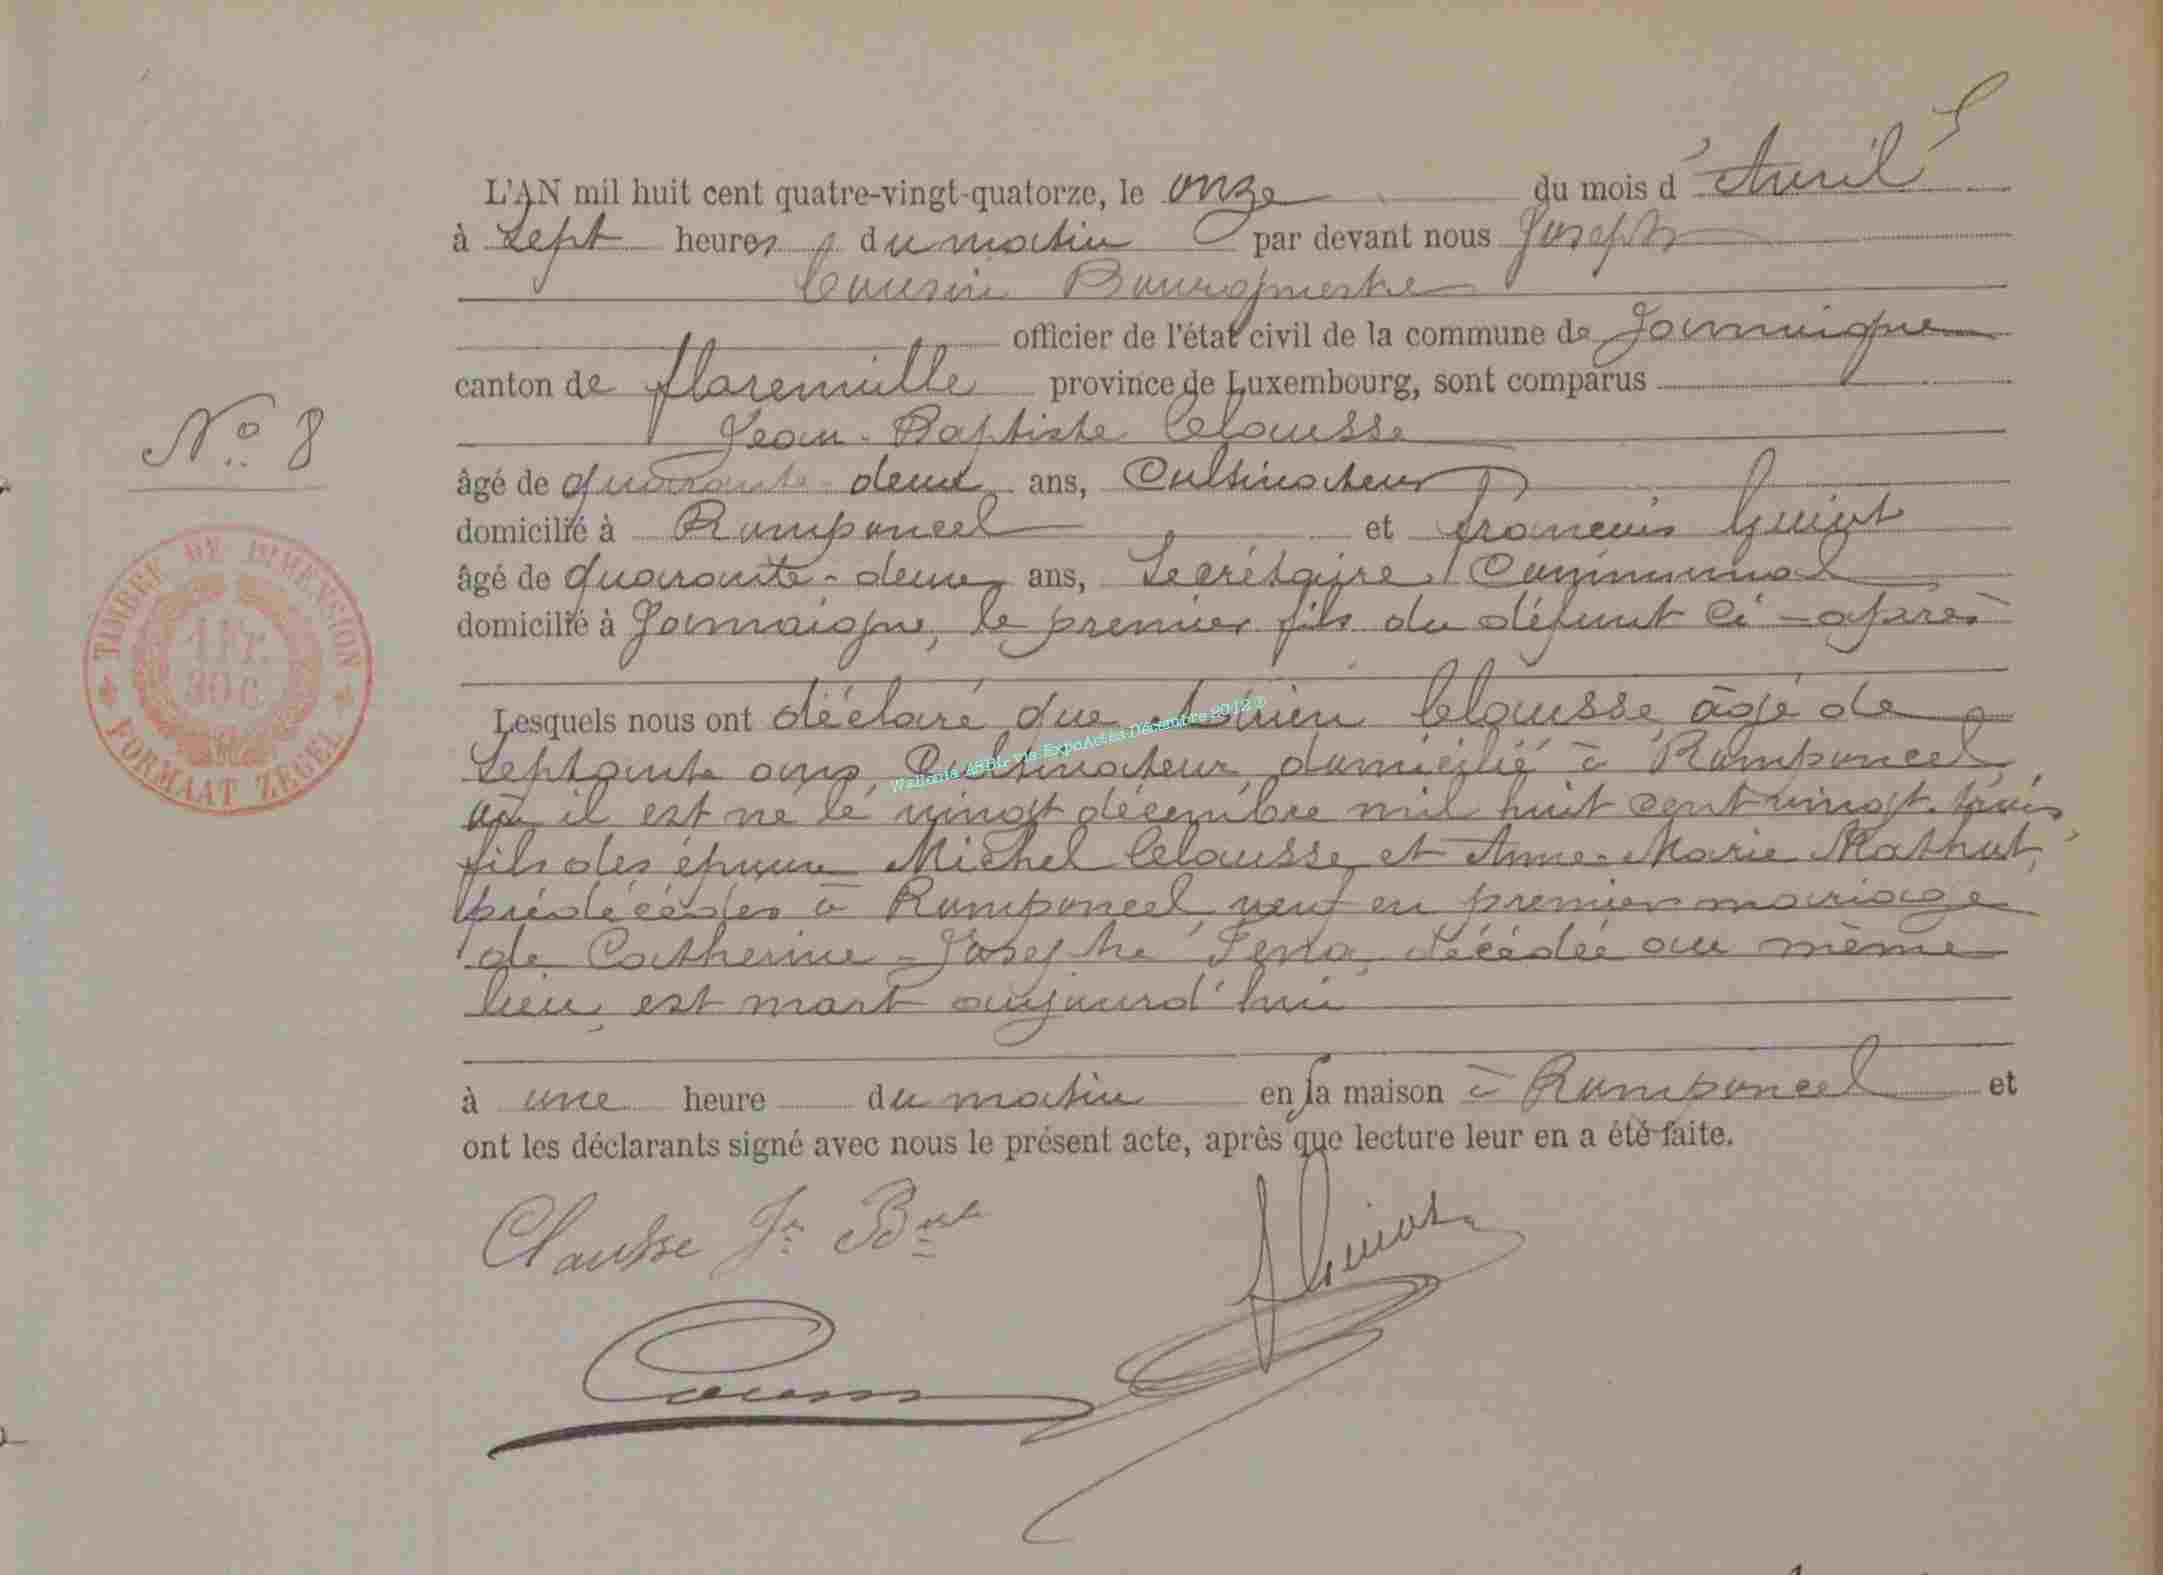 L'AN mil huit cent quatre-vingt-quatorze, le onze du mois d'Avril
à Sept heures du matin par devant nous Joseph
Cousin Bourgmestre
officier de l'état civil de la commune de Jamoigne
canton de florenville province de Luxembourg, sont comparus
Jean-Baptiste Clausse
N° 8
âgé de quarante-deux ans, Cultivateur
domicilié à Romponcel et françois Guiot
âgé de quarante-deux ans, Secrétaire Communal
domicilié à Jamoigne, le premier fils du défunt ci-après
TIMBRE DE DIMENSION
1 Fr.
30 C.
FORMAAT ZEGEL
Lesquels nous ont déclaré que Clausse âgé de
Septante ans, Cultivateur domicilié à Romponcel,
où il est né le vingt décembre mil huit cent vingt-trois,
fils des époux Michel Clausse et Anne-Marie Mathut,
prédécédés à Romponcel, veuf en premier mariage
de Catherine-Josephe décédée au même
lieu, est mort aujourd'hui
Wallonia ASBL via ExpoActes Décembre 2012 ©
à une heure du matin en sa maison à Romponcel et
ont les déclarants signé avec nous le présent acte, après que lecture leur en a été faite.
Clausse Jn Bte
f Guiot
Cousin